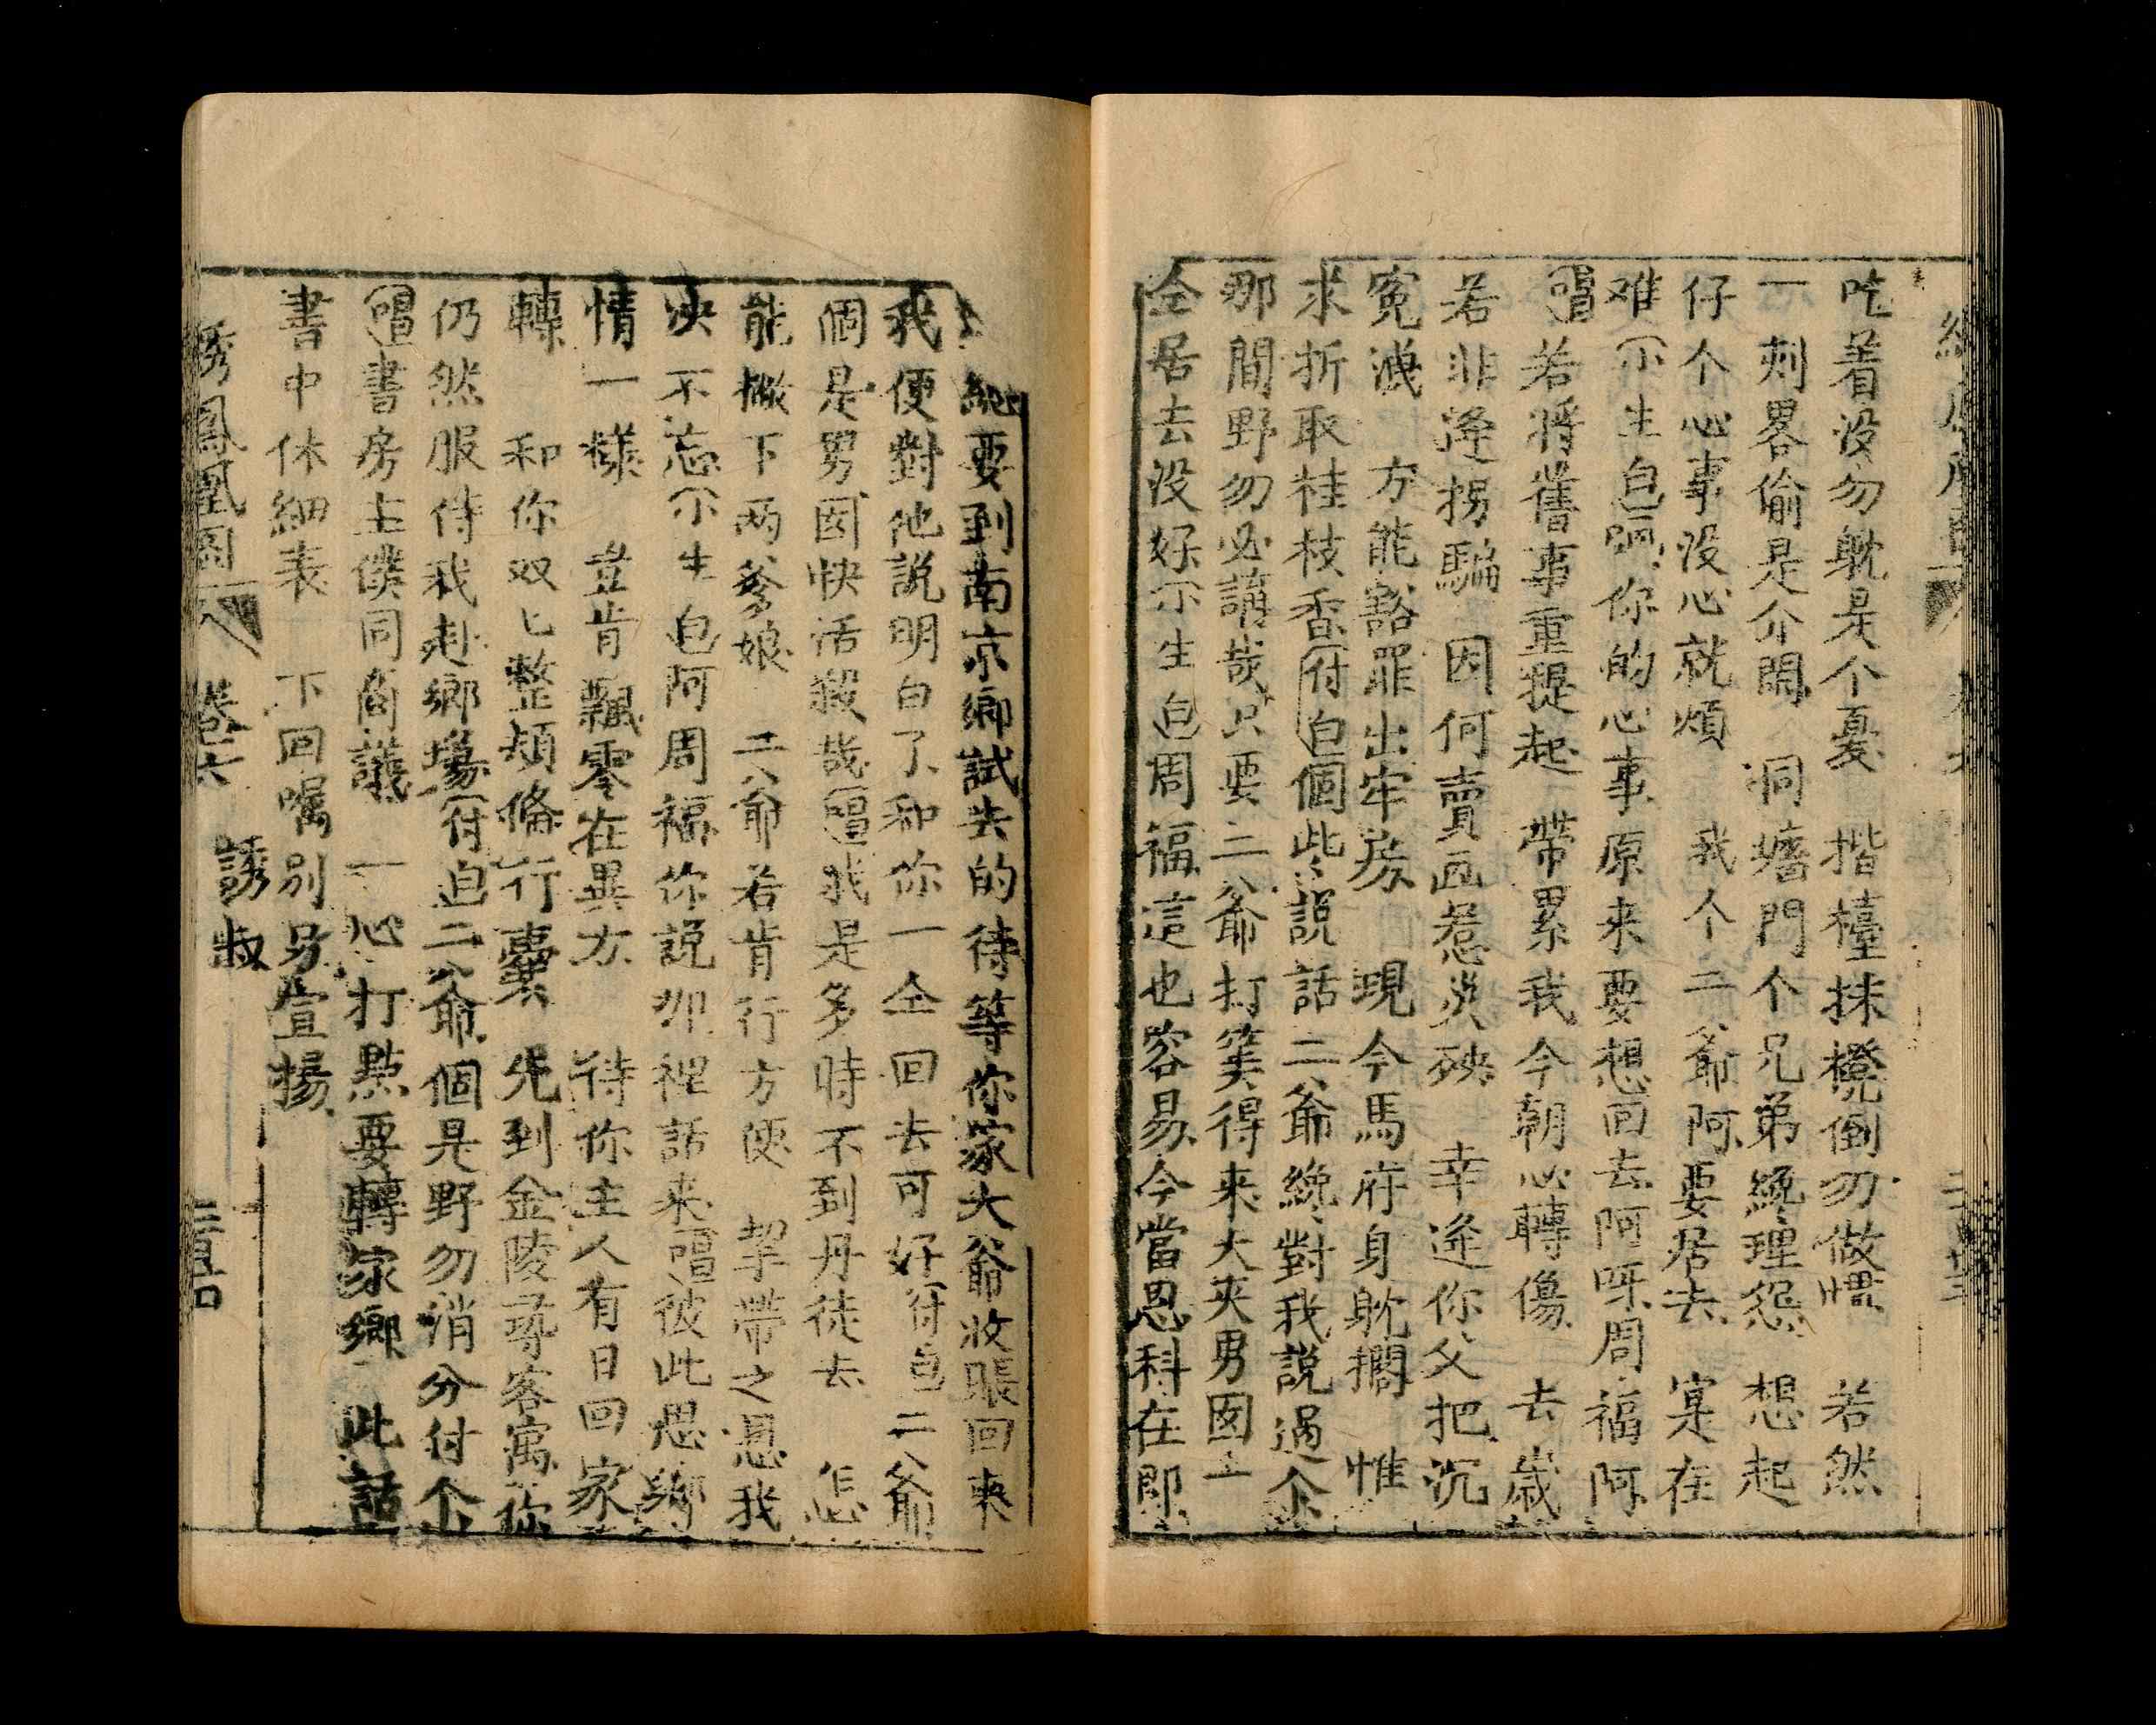 吃着没勿耽是个憂　揩檯抹櫈倒勿做慣　若然
一刺畧偷是介閙　洞墻門个兄弟總理怨　想起
仔个心事没心就煩　我个二爷阿要居去　寔在
难㣺生白啊你的心事原来要想回去阿呀周福阿
唱若將舊事重提起　帶累我今朝心轉傷　去歲
若非逢拐騙　因何賣画惹災殃　幸逢你父把沉
冤洩　方能豁罪出牢房　現今馬府身耽擱　惟
求折取桂枝香付白個些説話二爷總對我説過个
那間野勿必講哉只要二爷打筭得来大夾男囡
仝居去没好㣺生白周福這也容易今當恩科在即
總要到南京鄉試去的待等你家大爺收賬回来
我便對他説明白了和你一仝回去可好付白二爷
個是男囡快活殺哉唱我是多時不到丹徒去　怎
能撇下两爹娘　二爷若肯行方便　挈帶之恩我
决不忘㣺生白阿周福你説那裡話来唱彼此思鄉
情一樣　豈肯飄零在異方　待你主人有日回家
轉　和你双匕整頓俻行囊　先到金陵尋客寓　你
仍然服侍我赴鄉塲付白二爷個是野勿消分付个
唱書房主僕同商議　一心打㸃要轉家鄉　此話
書中休細表　下回嘱别另宣揚
綉鳳凰圖　卷六　誘叔